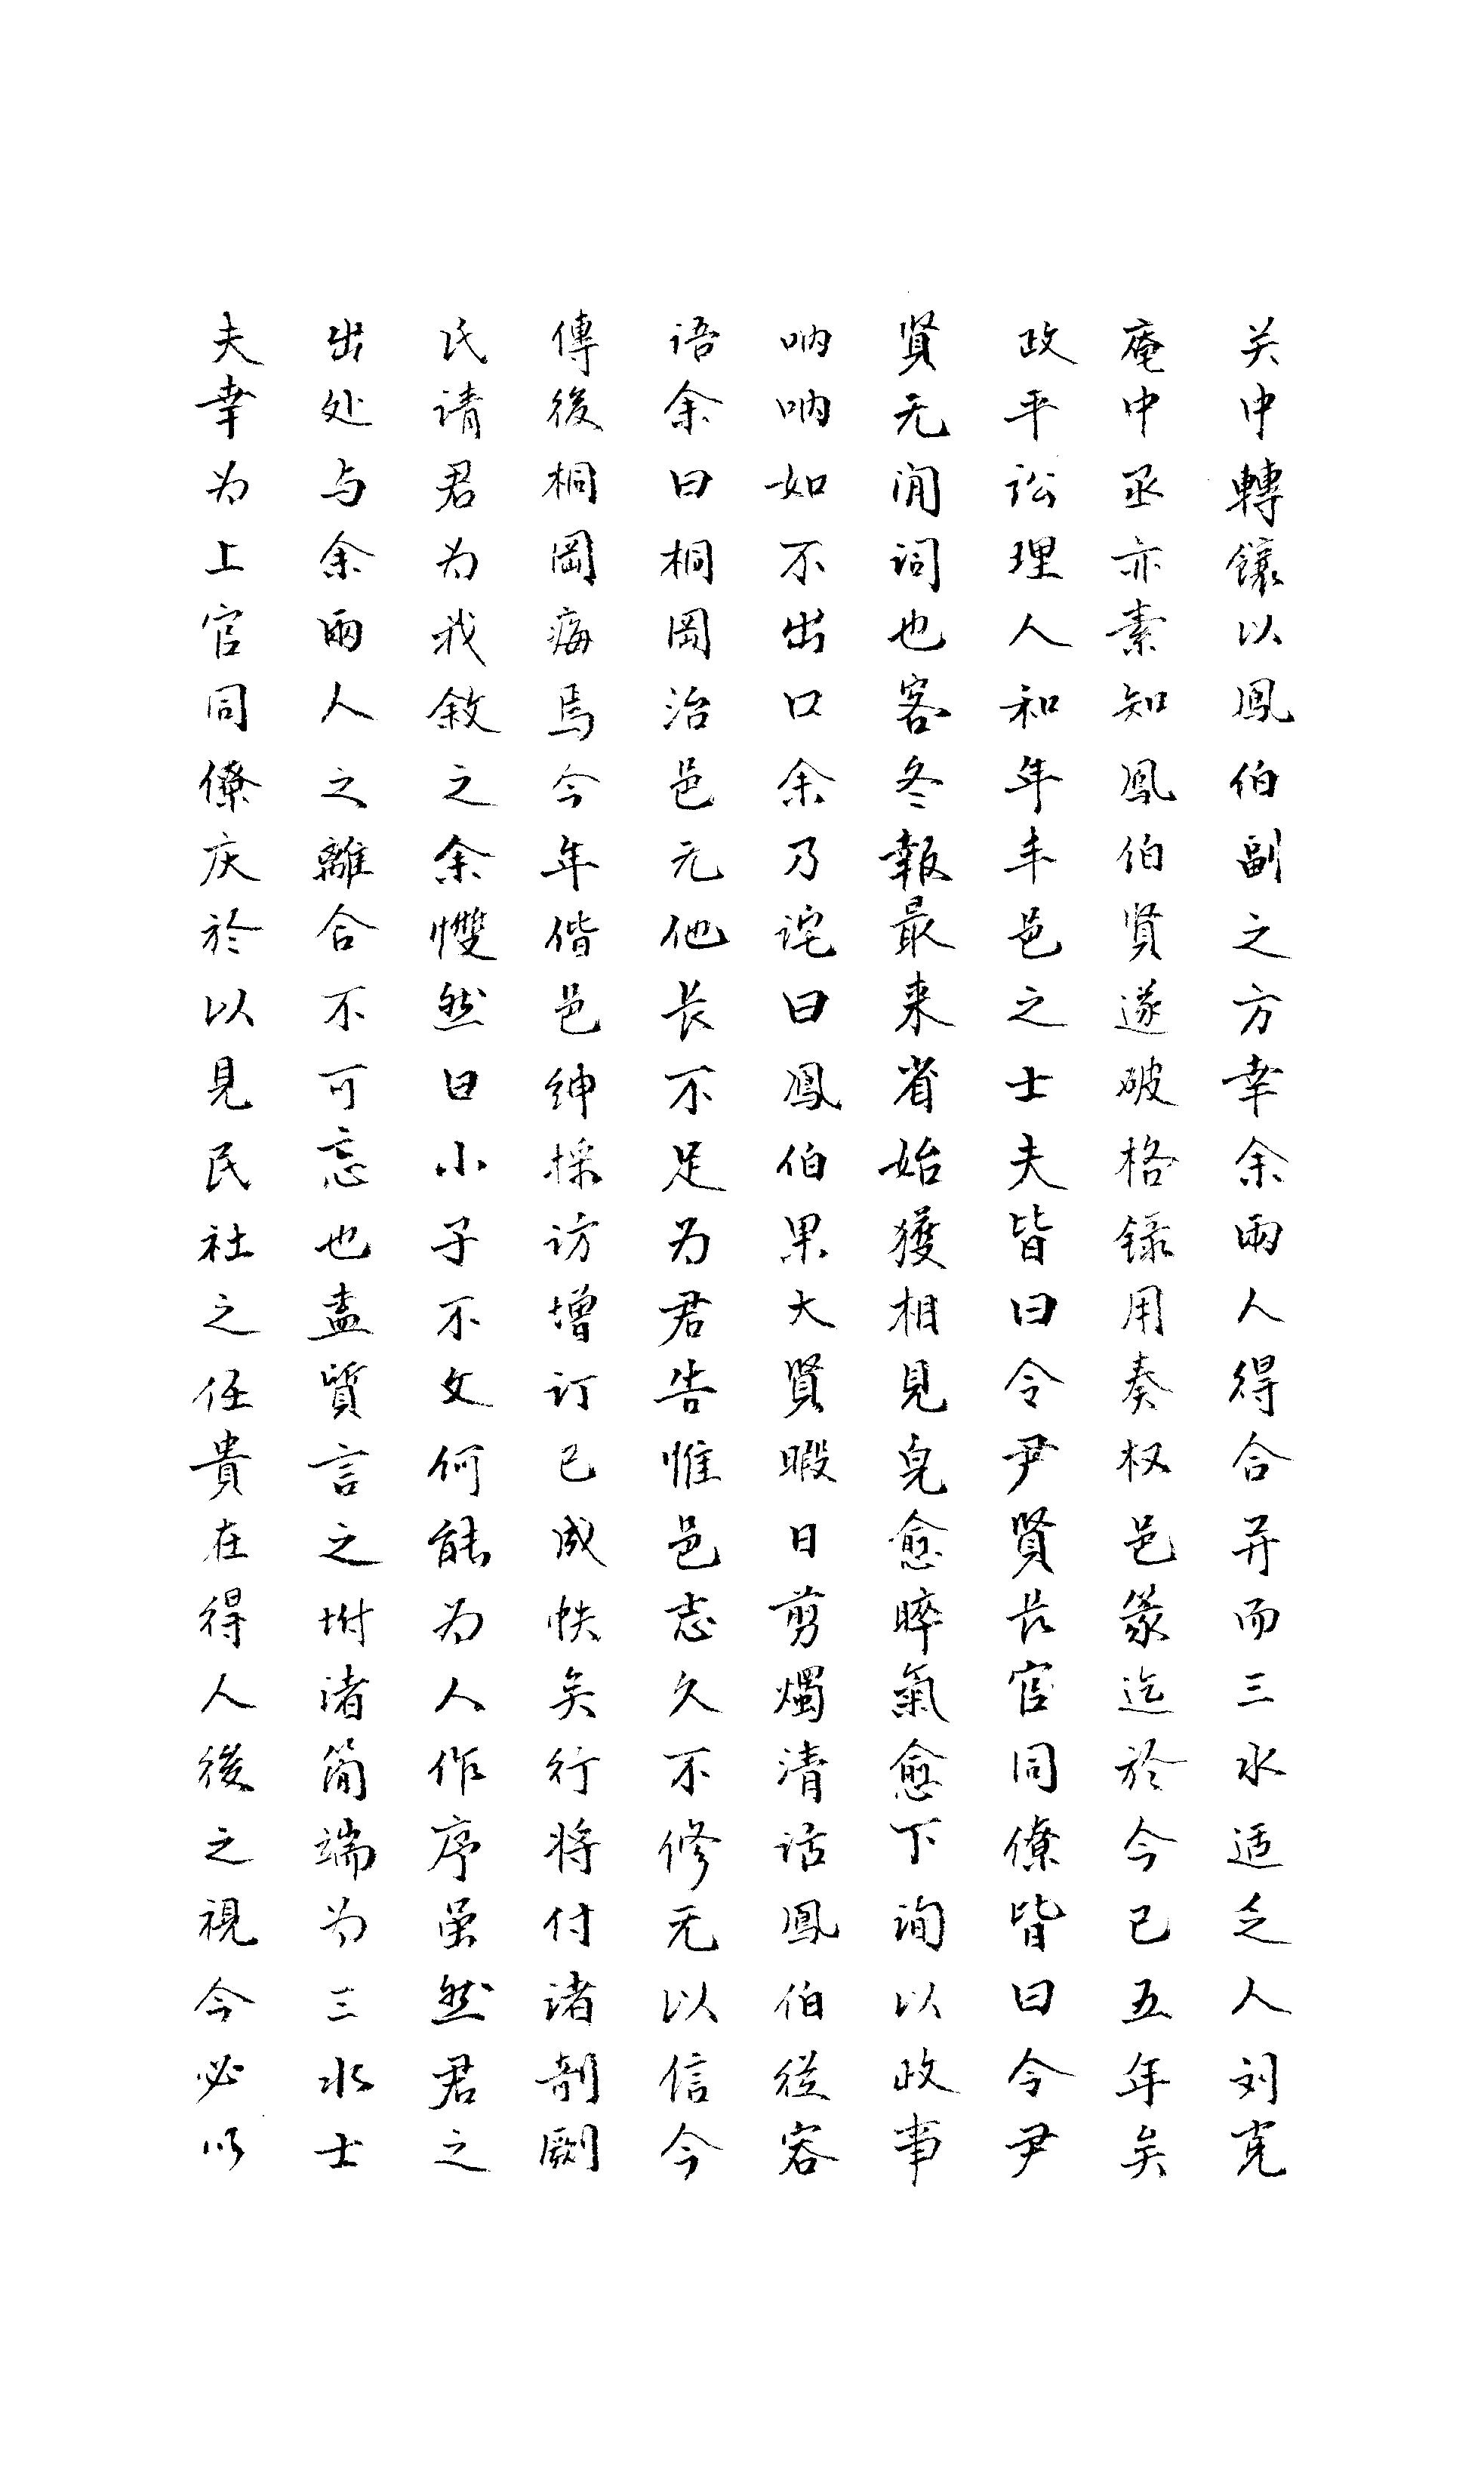 关中轉饟以鳳伯副之方幸余兩人得合并而三水适乏人刘克
庵中丞亦素知鳳伯賢遂破格録用奏权邑篆迄於今已五年矣
政平訟理人和年丰邑之士夫皆曰令尹賢长官同僚皆曰令尹
賢无间词也客冬報最来省始獲相見皃愈晬氣愈下询以政事
呐呐如不出口余乃诧曰鳳伯果大賢暇日剪燭清话鳳伯從容
语余曰桐岡治邑无他长不足为君告惟邑志久不修无以信今
傳後桐岡痗焉今年偕邑绅採访增订已成帙矣行将付诸剞劂
氏请君为我敘之余戄然曰小子不文何能为人作序虽然君之
出处与余兩人之離合不可忘也盍質言之坿诸简端为三水士
夫幸为上官同僚庆於以見民社之任貴在得人後之視今必以